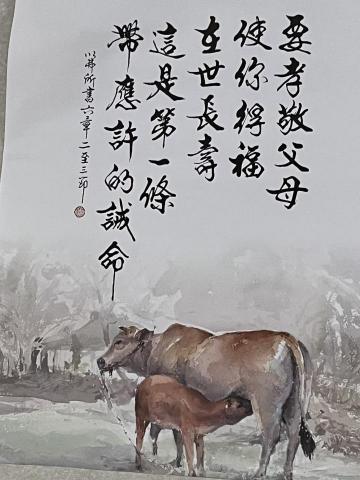 要孝敬父母
使你得福
在世長壽
這是第一條
帶應許的誡命
以弗所書六章二至三節